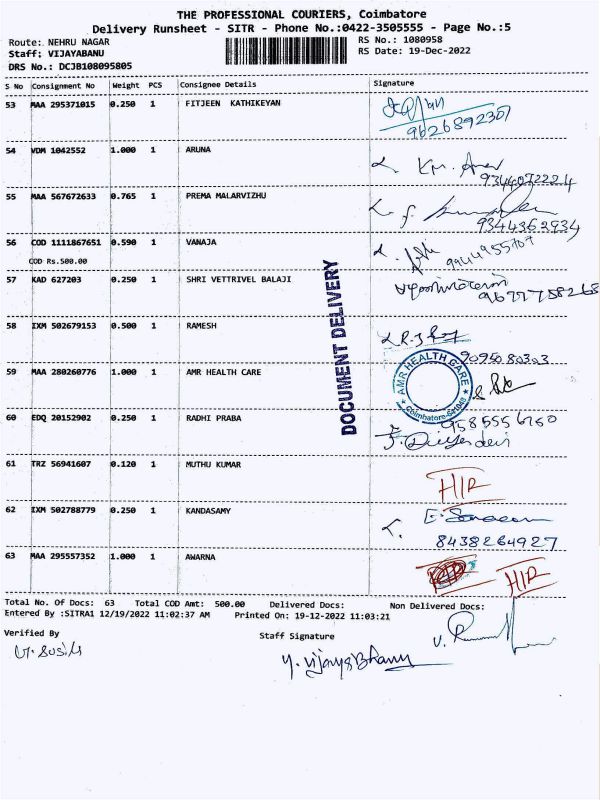 THE PROFESSIONAL COURIERS, Coimbatore
Delivery Runsheet - SITR - Phone No.:0422-3505555 - Page No.:5
Route: NEHRU NAGAR RS No.: 1080958
Staff: VIJAYABANU RS Date: 19-Dec-2022
DRS No.: DCJB108095805
S No Consignment No Weight PCS Consignee Details Signature
53 MAA 295371015 0.250 1 FITJEEN KATHIKEYAN
9626892307
54 VDM 1042552 1.000 1 ARUNA
9344072224
55 MAA 567672633 0.765 1 PREMA MALARVIZHU
9344362934
56 COD 1111867651 0.590 1 VANAJA
9944955707
COD Rs.500.00
57 KAD 627203 0.250 1 SHRI VETTRIVEL BALAJI
9677758268
DOCUMENT DELIVERY
58 IXM 502679153 0.500 1 RAMESH
9095080303
59 MAA 280260776 1.000 1 AMR HEALTH CARE
AMR HEALTH CARE
60 EDQ 20152902 0.250 1 RADHI PRABA
9585556760
61 TRZ 56941607 0.120 1 MUTHU KUMAR
HIR
62 IXM 502788779 0.250 1 KANDASAMY
8438264927
63 MAA 295557352 1.000 1 AWARNA
HIR
Total No. Of Docs: 63 Total COD Amt: 500.00 Delivered Docs: Non Delivered Docs:
Entered By :SITRA1 12/19/2022 11:02:37 AM Printed On: 19-12-2022 11:03:21
Verified By Staff Signature
Y. VijayaBhanu